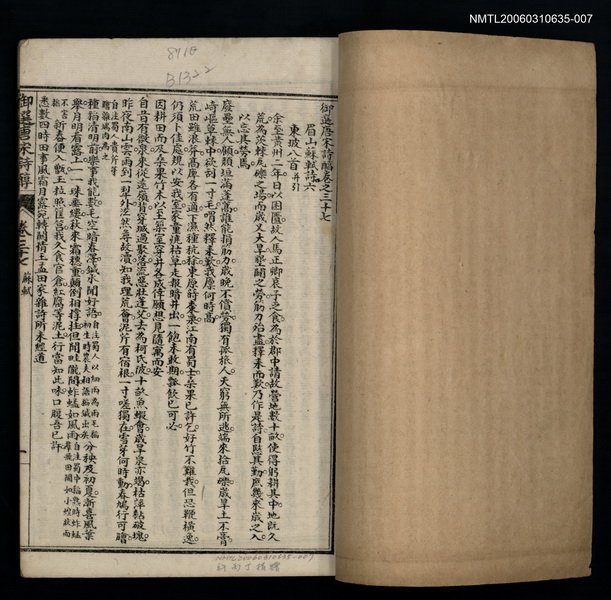 NMTL20060310635-007
御選唐宋詩醇卷之三十七
眉山蘇軾詩六
東坡八首并引
余至黃州二年日以困匱故人馬正卿哀予乏食為於郡中請故營地數十畝使得躬耕其中地既久
荒為茨棘瓦礫之場而歲又大旱墾闢之勞筋力殆盡釋耒而歎乃作是詩自愍其勤庶幾來歲之入
以忘其勞焉
廢壘無人顧頹垣滿蓬蒿誰能捐筋力歲晚不償勞獨有孤旅人天窮無所逃端來拾瓦礫歲旱土不膏
崎嶇草棘中欲刮一寸毛喟然釋耒歎我廩何時高
荒田雖浪莽高庳各有適下隰種秔稌東原蒔棗栗江南有蜀士桑果已許乞好竹不難栽但恐鞭橫逸
仍須卜佳處規以安我室家僮燒枯草走報暗井出一飽未敢期瓢飲已可必
自昔有微泉來從遠嶺背穿城過聚落流惡壯蓬艾去為柯氏陂十畝魚蝦會歲旱泉亦竭枯萍黏破塊
昨夜南山雲雨到一犂外泫然尋故瀆知我理荒薈泥芹有宿根一寸嗟獨在雪芽何時動春鳩行可膾
自注蜀人貴芹芽膾雜鳩肉為之
種稻清明前樂事我能數毛空暗春澤鍼水聞好語自注蜀人以細雨為雨毛稻初生時農夫相語稻鍼出矣分秧及初夏漸喜風葉
舉月明看露上一一珠垂縷秋來霜穗重顛倒相撐拄但聞畦隴間蚱蜢如風雨自注蜀中稻熟時蚱蜢羣飛田間如小蝗狀而不害稻
新舂便入甑玉粒照筐筥我久食官倉紅腐等泥土行當知此味口腹吾已許
悉數四時田事風霜月露宛轉關情王孟田家雜詩所未經道
御選唐宋詩醇
卷三十七
蘇軾
一
NMTL20060310635-007